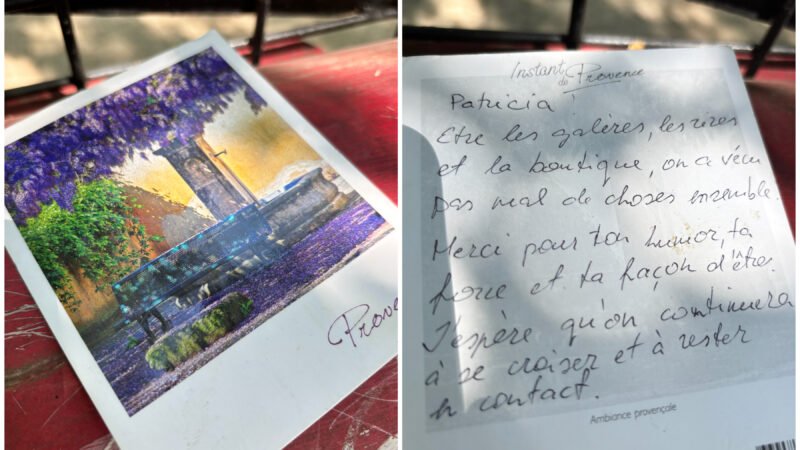 Prove
Instant
de Provence
Patricia !
Etre les galères, les rires
et la boutique, on a vécu
pas mal de choses ensemble.
Merci pour ton humor, ta
force et ta façon d'être.
J'espère qu'on continuera
à se croiser et à rester
en contact.
Ambiance provençale